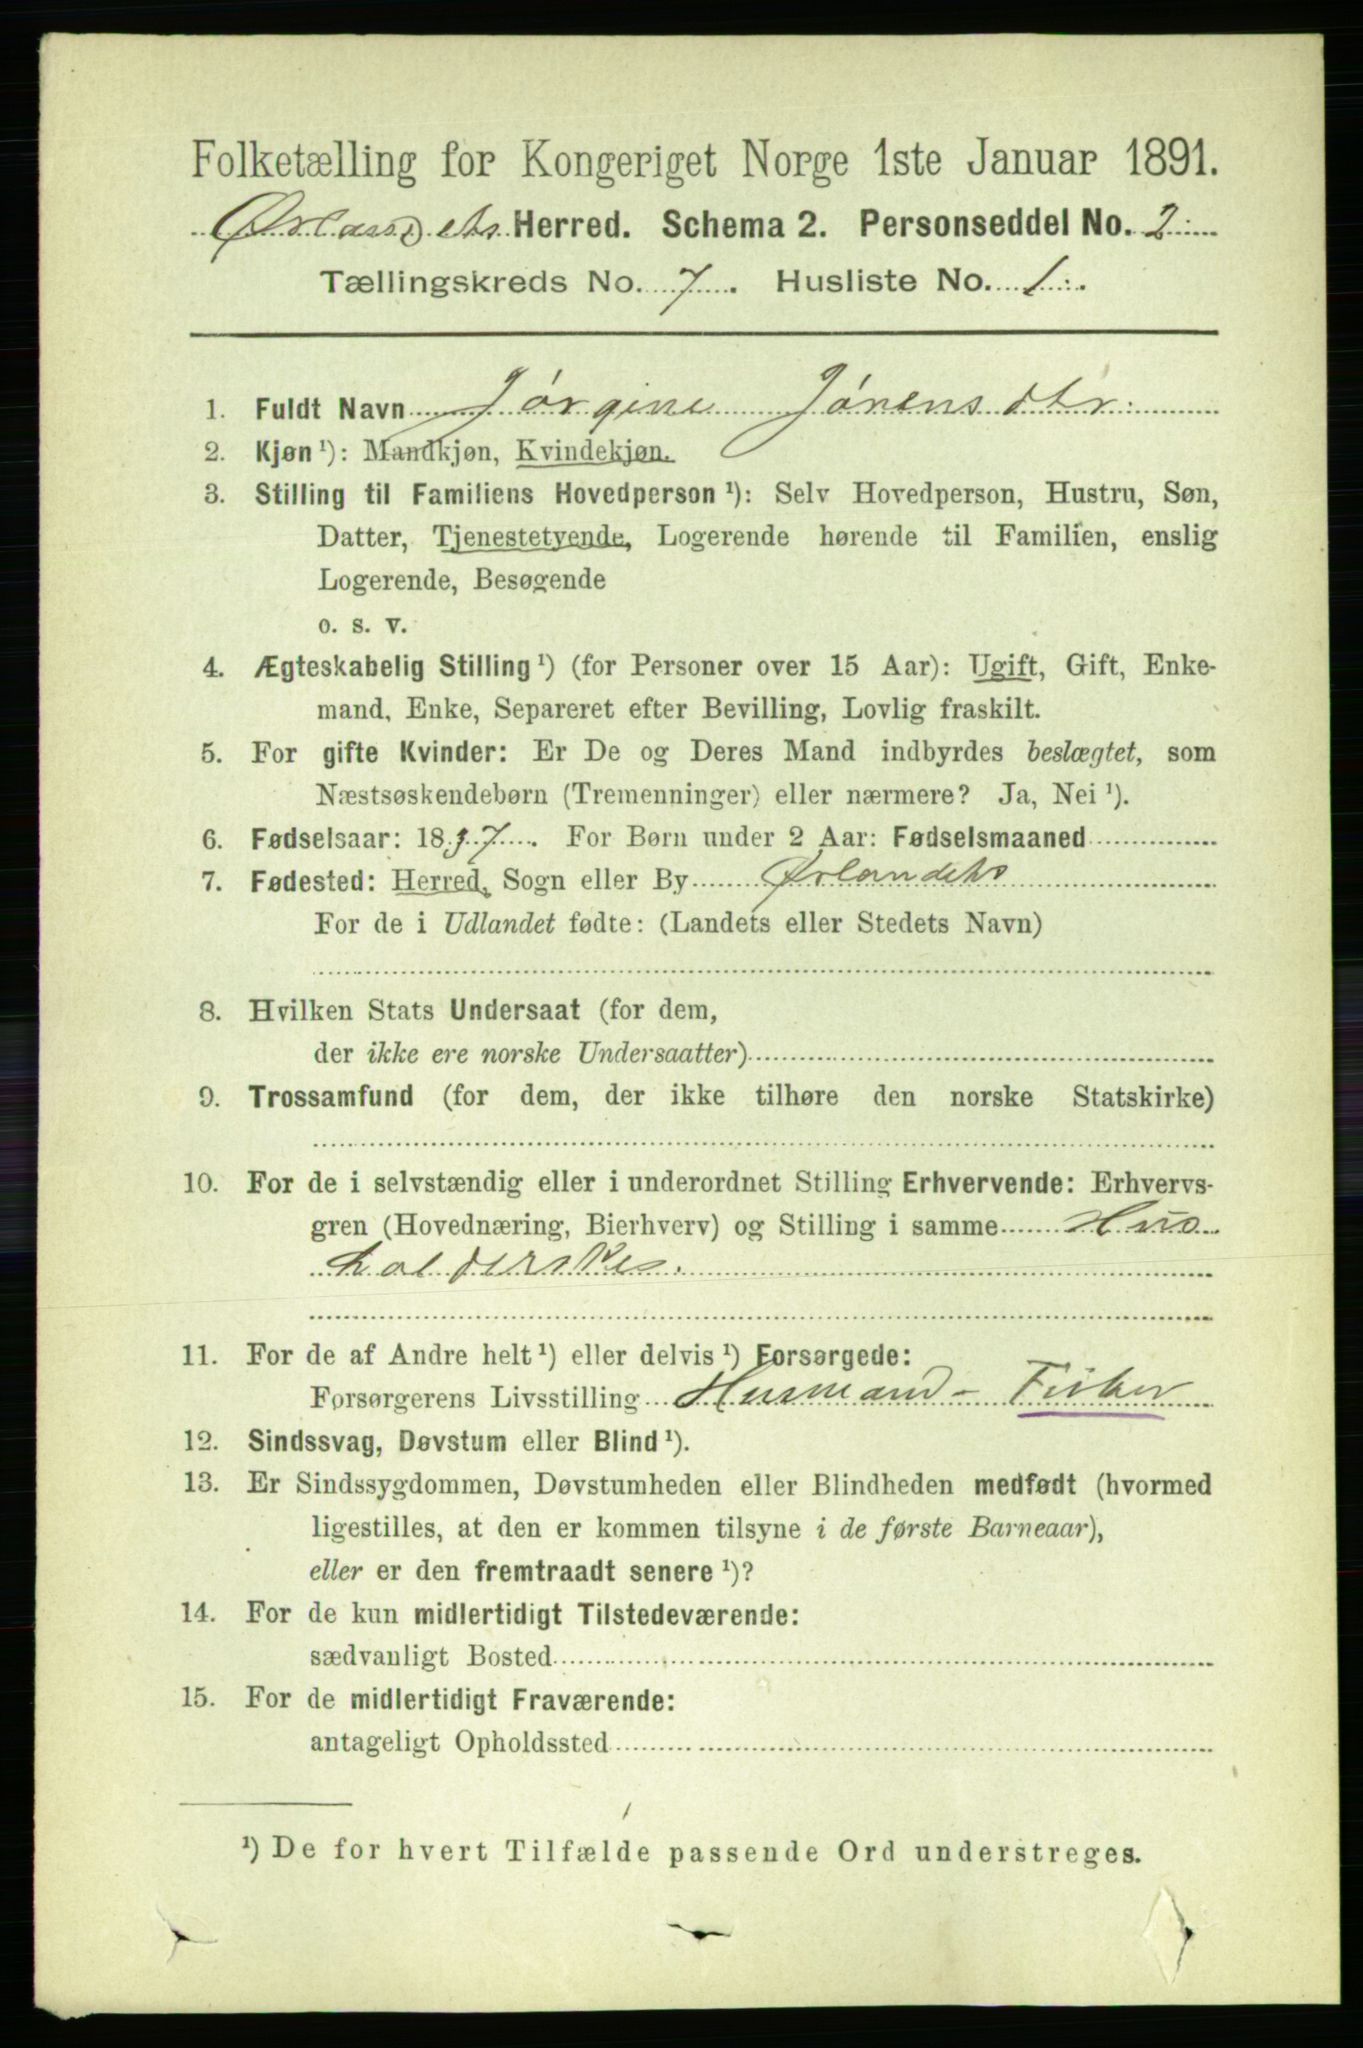 Folketælling for Kongeriget Norge 1ste Januar 1891.
Ørlandets Herred. Schema 2. Personseddel No. 2
Tællingskreds No. 7. Husliste No. 1.
1. Fuldt Navn Jørgine Jørensdtr
2. Kjøn ¹): Mandkjøn, Kvindekjøn.
3. Stilling til Familiens Hovedperson ¹): Selv Hovedperson, Hustru, Søn,
Datter, Tjenestetyende, Logerende hørende til Familien, enslig
Logerende, Besøgende
o. s. v.
4. Ægteskabelig Stilling ¹) (for Personer over 15 Aar): Ugift, Gift, Enke-
mand, Enke, Separeret efter Bevilling, Lovlig fraskilt.
5. For gifte Kvinder: Er De og Deres Mand indbyrdes beslægtet, som
Næstsøskendebørn (Tremenninger) eller nærmere? Ja, Nei ¹).
6. Fødselsaar: 1837. For Børn under 2 Aar: Fødselsmaaned
7. Fødested: Herred, Sogn eller By Ørlandets
For de i Udlandet fødte: (Landets eller Stedets Navn)
8. Hvilken Stats Undersaat (for dem,
der ikke ere norske Undersaatter)
9. Trossamfund (for dem, der ikke tilhøre den norske Statskirke)
10. For de i selvstændig eller i underordnet Stilling Erhvervende: Erhvervs-
gren (Hovednæring, Bierhverv) og Stilling i samme Hus
holderskes.
11. For de af Andre helt ¹) eller delvis ¹) Forsørgede:
Forsørgerens Livsstilling Husmand - Fisker
12. Sindssvag, Døvstum eller Blind ¹).
13. Er Sindssygdommen, Døvstumheden eller Blindheden medfødt (hvormed
ligestilles, at den er kommen tilsyne i de første Barneaar),
eller er den fremtraadt senere ¹)?
14. For de kun midlertidigt Tilstedeværende:
sædvanligt Bosted
15. For de midlertidigt Fraværende:
antageligt Opholdssted
¹) De for hvert Tilfælde passende Ord understreges.